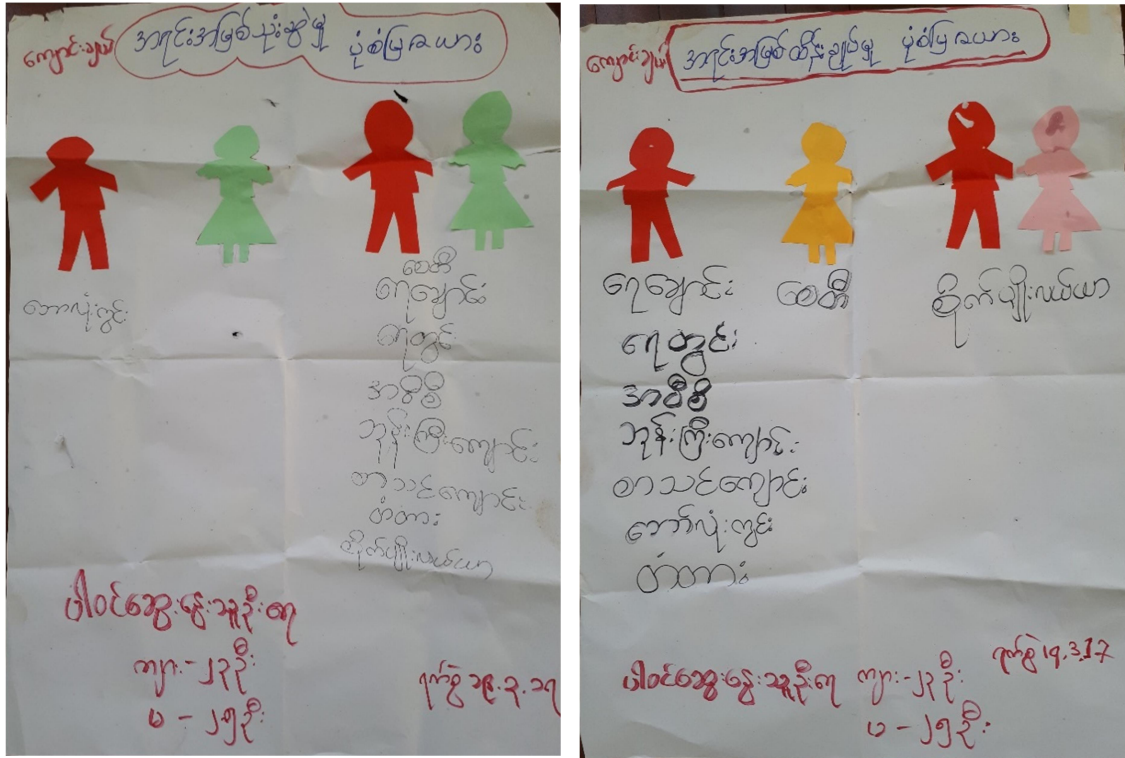 ကျောင်းချယ်
အရင်းအမြစ်သုံးစွဲမှု ပုံစံပြဇယား
ဘောလုံးကွင်း
စေတီ
ရေချောင်း
ရေတွင်း
အဝီစိ
ဘုန်းကြီးကျောင်း
စာသင်ကျောင်း
တံတား
စိုက်ပျိုးလယ်ယာ
ပါဝင်ဆွေးနွေးသူဦးရေ
ကျား - ၂၃ဦး
မ - ၂၅ဦး
ရက်စွဲ ၁၉.၃.၁၇
ကျောင်းချယ်
အရင်းအမြစ်ထိန်းချုပ်မှု ပုံစံပြဇယား
ရေချောင်း
ရေတွင်း
အဝီစိ
ဘုန်းကြီးကျောင်း
စာသင်ကျောင်း
ဘော်လုံးကွင်း
တံတား
စေတီ
စိုက်ပျိုးလယ်ယာ
ပါဝင်ဆွေးနွေးသူဦးရေ ကျား - ၂၃ဦး
မ - ၂၅ဦး
ရက်စွဲ 19.3.17